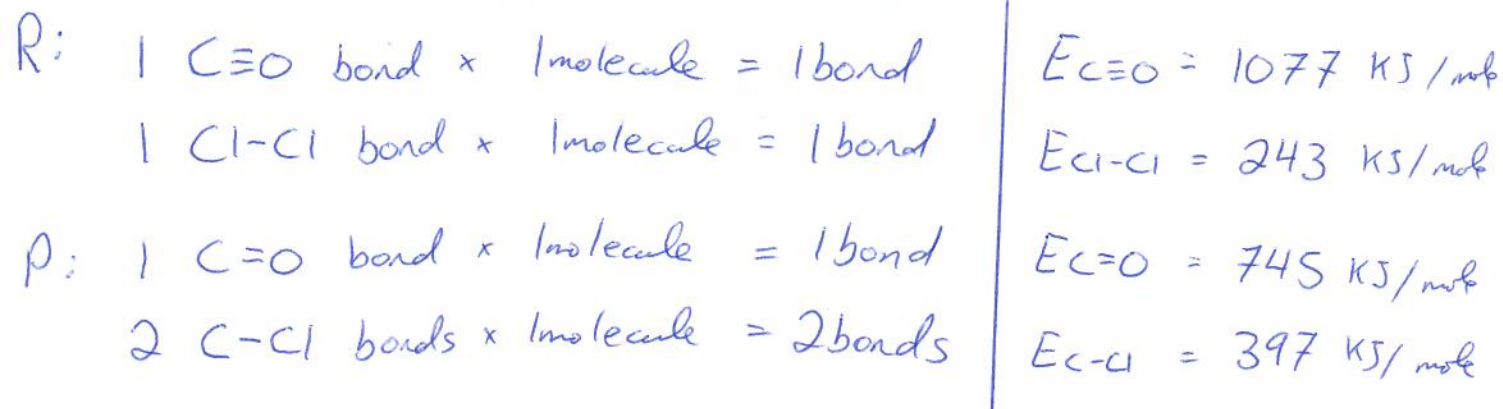 R: 1 C≡O bond × 1molecule = 1bond
1 Cl-Cl bond × 1molecule = 1bond
P: 1 C=O bond × 1molecule = 1bond
2 C-Cl bonds × 1molecule = 2bonds
EC≡O = 1077 KJ/mole
ECl-Cl = 243 KJ/mole
EC=O = 745 KJ/mole
EC-Cl = 397 KJ/mole